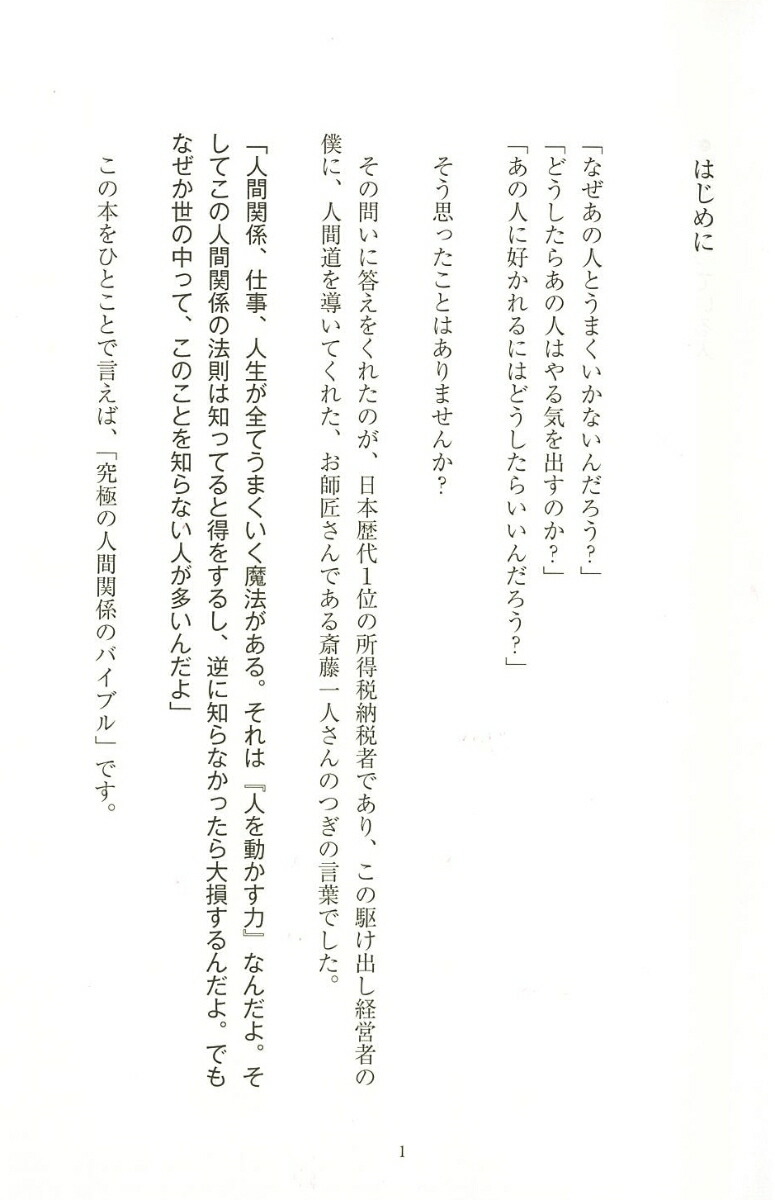 はじめに
「なぜあの人とうまくいかないんだろう？」
「どうしたらあの人はやる気を出すのか？」
「あの人に好かれるにはどうしたらいいんだろう？」
そう思ったことはありませんか？
その問いに答えをくれたのが、日本歴代1位の所得税納税者であり、この駆け出し経営者の
僕に、人間道を導いてくれた、お師匠さんである斎藤一人さんのつぎの言葉でした。
「人間関係、仕事、人生が全てうまくいく魔法がある。それは『人を動かす力』なんだよ。そ
してこの人間関係の法則は知ってると得をするし、逆に知らなかったら大損するんだよ。でも
なぜか世の中って、このことを知らない人が多いんだよ」
この本をひとことで言えば、「究極の人間関係のバイブル」です。
1